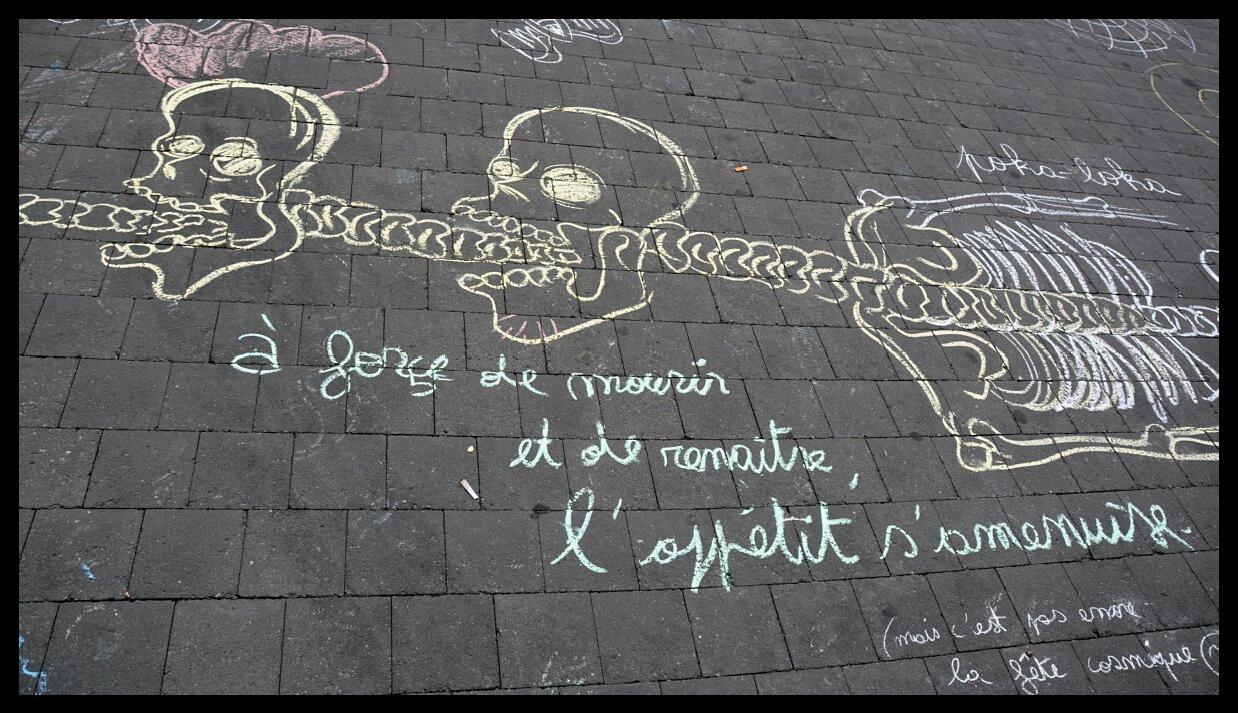 poka-loka
à force de mourir
et de renaitre,
l'appétit s'amenuise.
(mais c'est pas encore
la fête cosmique)